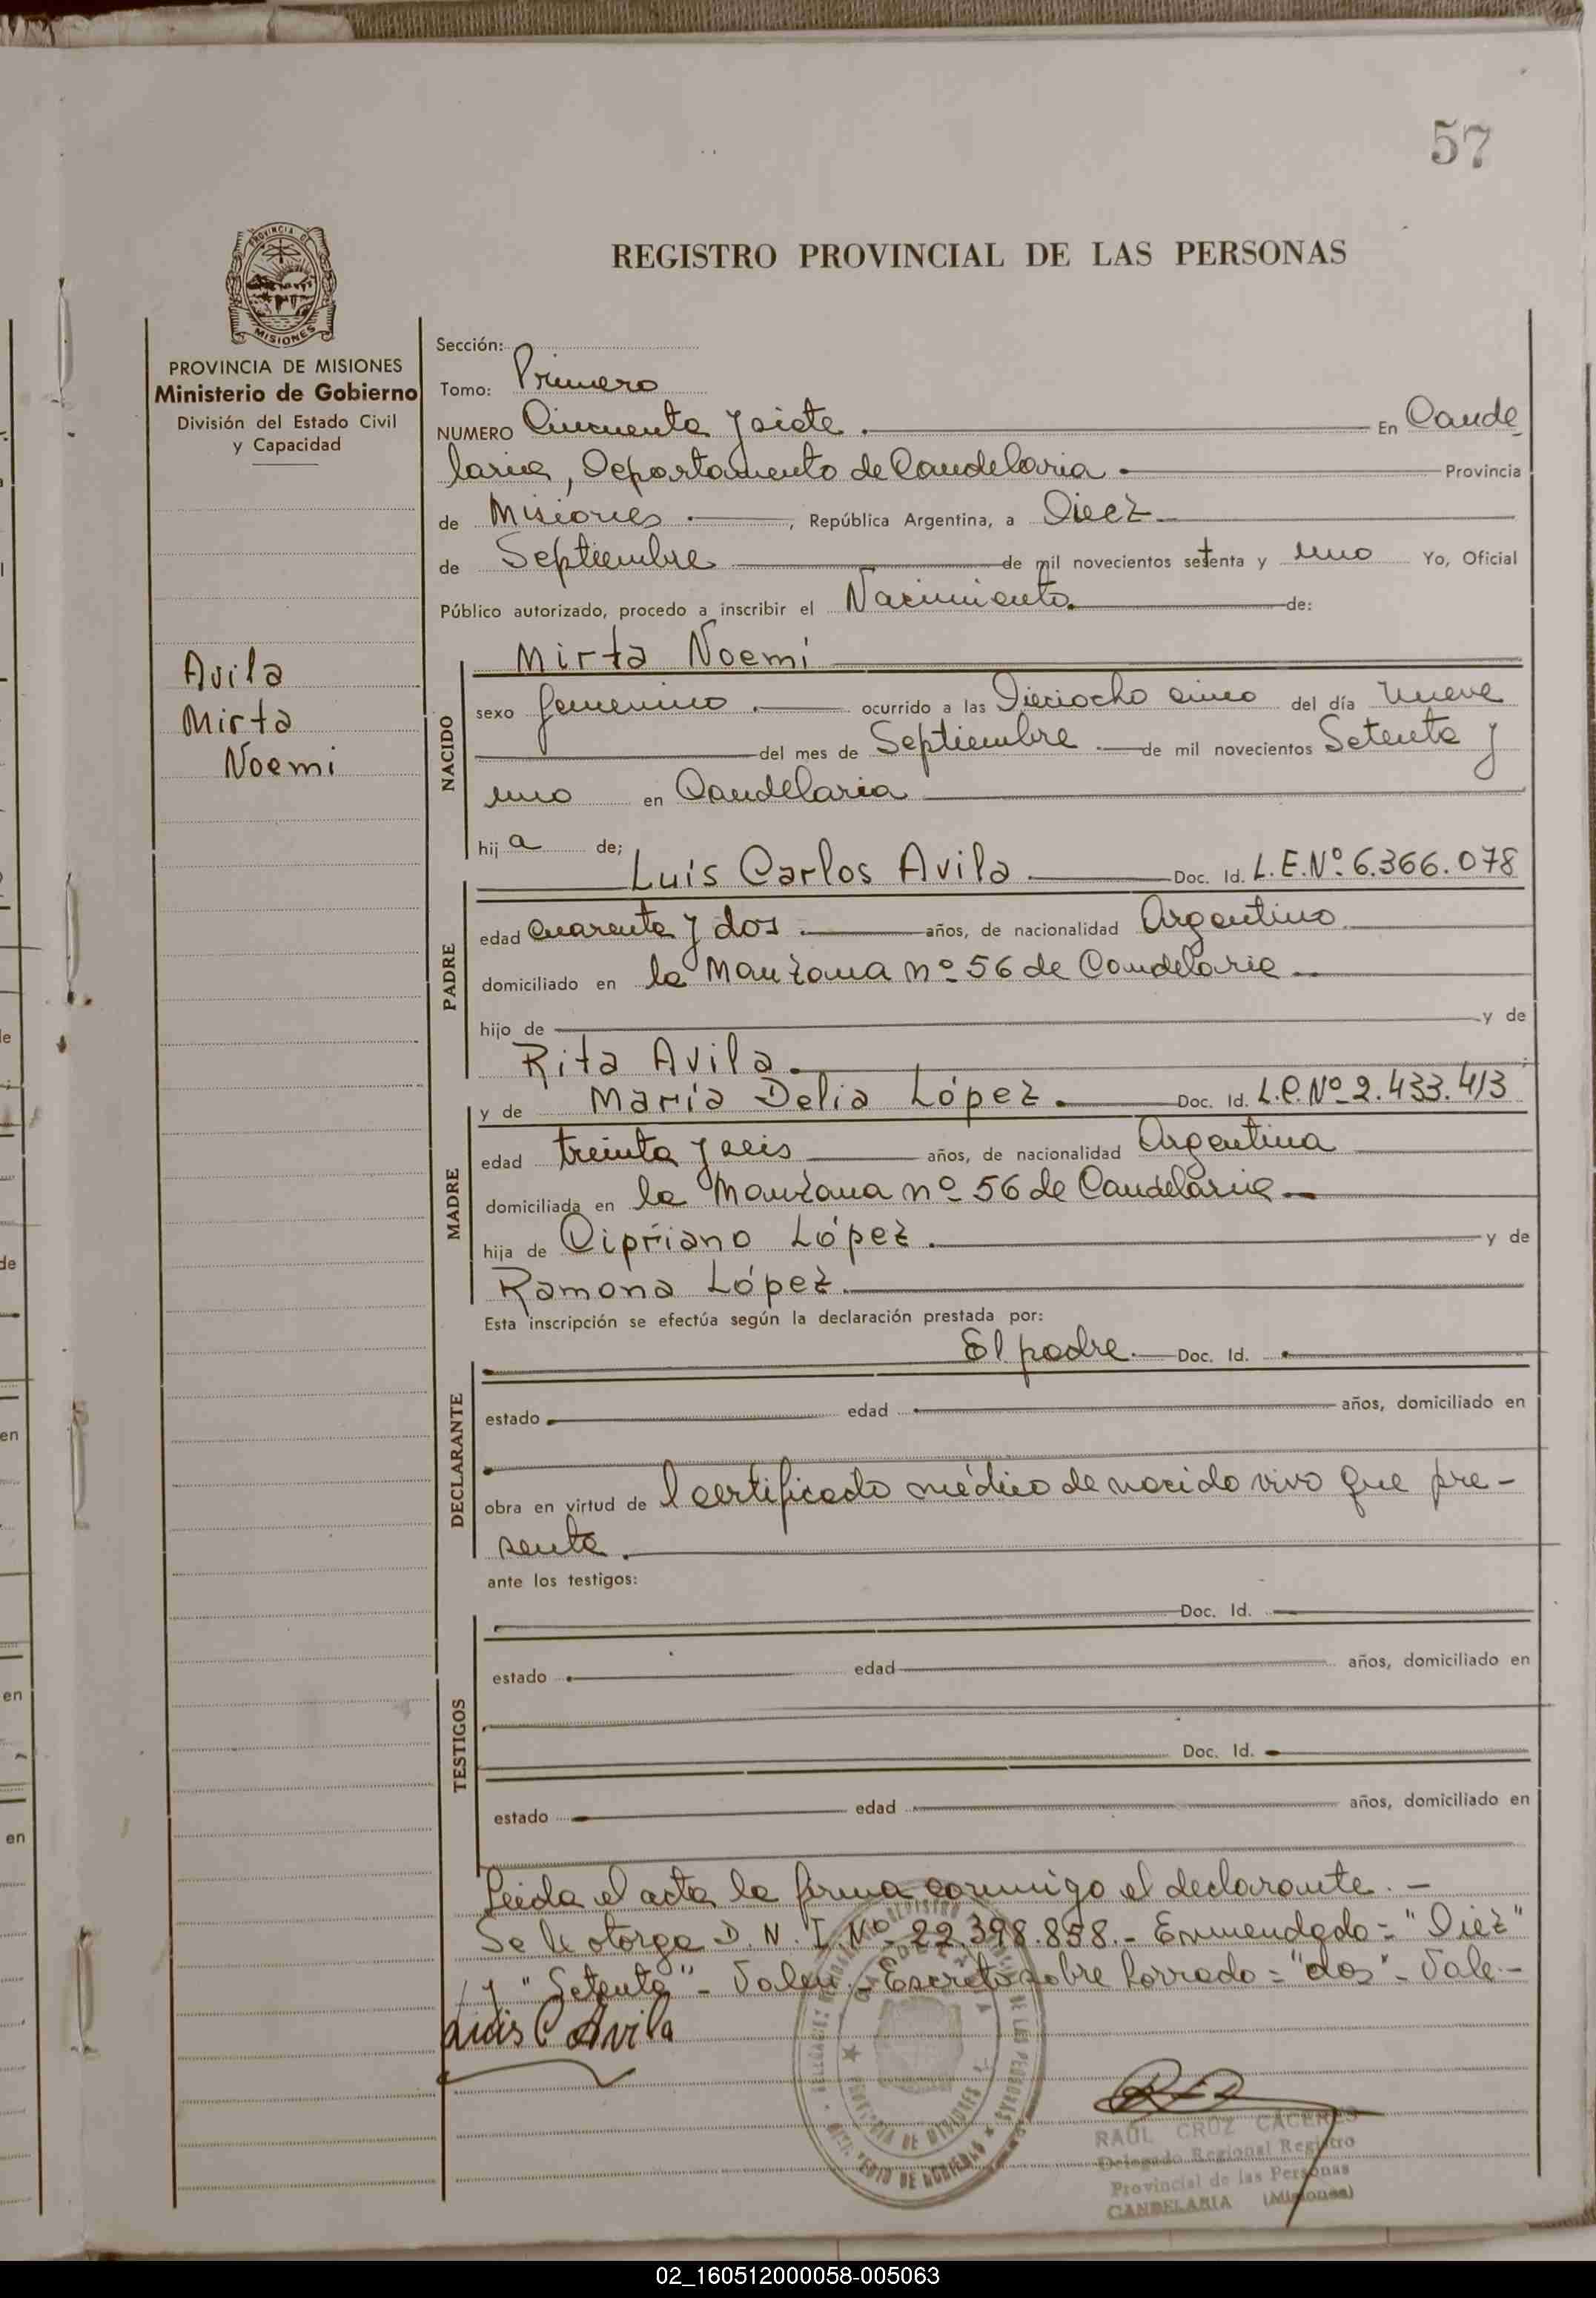 57
PROVINCIA DE
MISIONES
REGISTRO PROVINCIAL DE LAS PERSONAS
PROVINCIA DE MISIONES
Ministerio de Gobierno
División del Estado Civil
y Capacidad
Avila
Mirta
Noemi
Sección:
Tomo: Primero
NUMERO Cincuenta y siete. En Cande
laria, Departamento de Candelaria. Provincia
de Misiones. , República Argentina, a Diez
de Septiembre de mil novecientos setenta y uno Yo, Oficial
Público autorizado, procedo a inscribir el Nacimiento. de:
NACIDO
Mirta Noemi
sexo femenino. ocurrido a las Dieciocho cinco del día nueve
del mes de Septiembre. de mil novecientos Setenta y
uno en Candelaria
hij a de;
PADRE
Luis Carlos Avila. Doc. Id. L.E.Nº 6.366.078
edad cuarenta y dos. años, de nacionalidad Argentino.
domiciliado en la Manzana nº 56 de Candelaria.
hijo de y de
Rita Avila.
MADRE
y de María Delia López. Doc. Id. L.C.Nº 2.433.413
edad treinta y seis años, de nacionalidad Argentina
domiciliada en la Manzana nº 56 de Candelaria.
hija de Cipriano López. y de
Ramona López.
Esta inscripción se efectúa según la declaración prestada por:
DECLARANTE
El padre. Doc. Id.
estado edad años, domiciliado en
obra en virtud de l certificado médico de nacido vivo que pre-
senta.
ante los testigos:
TESTIGOS
Doc. Id.
estado edad años, domiciliado en
Doc. Id.
estado edad años, domiciliado en
Leida el acta la firma conmigo el declarante. -
Se le otorga D.N.I. Nº 22.398.858.- Enmendado = "Diez"
y "Setenta" - Valen.- Escrito sobre borrado = "dos" - Vale.-
Luis C Avila
PROVINCIA DE MISIONES
RAUL CRUZ CACERES
Delegado Regional Registro
Provincial de las Personas
CANDELARIA (Misiones)
02_160512000058-005063